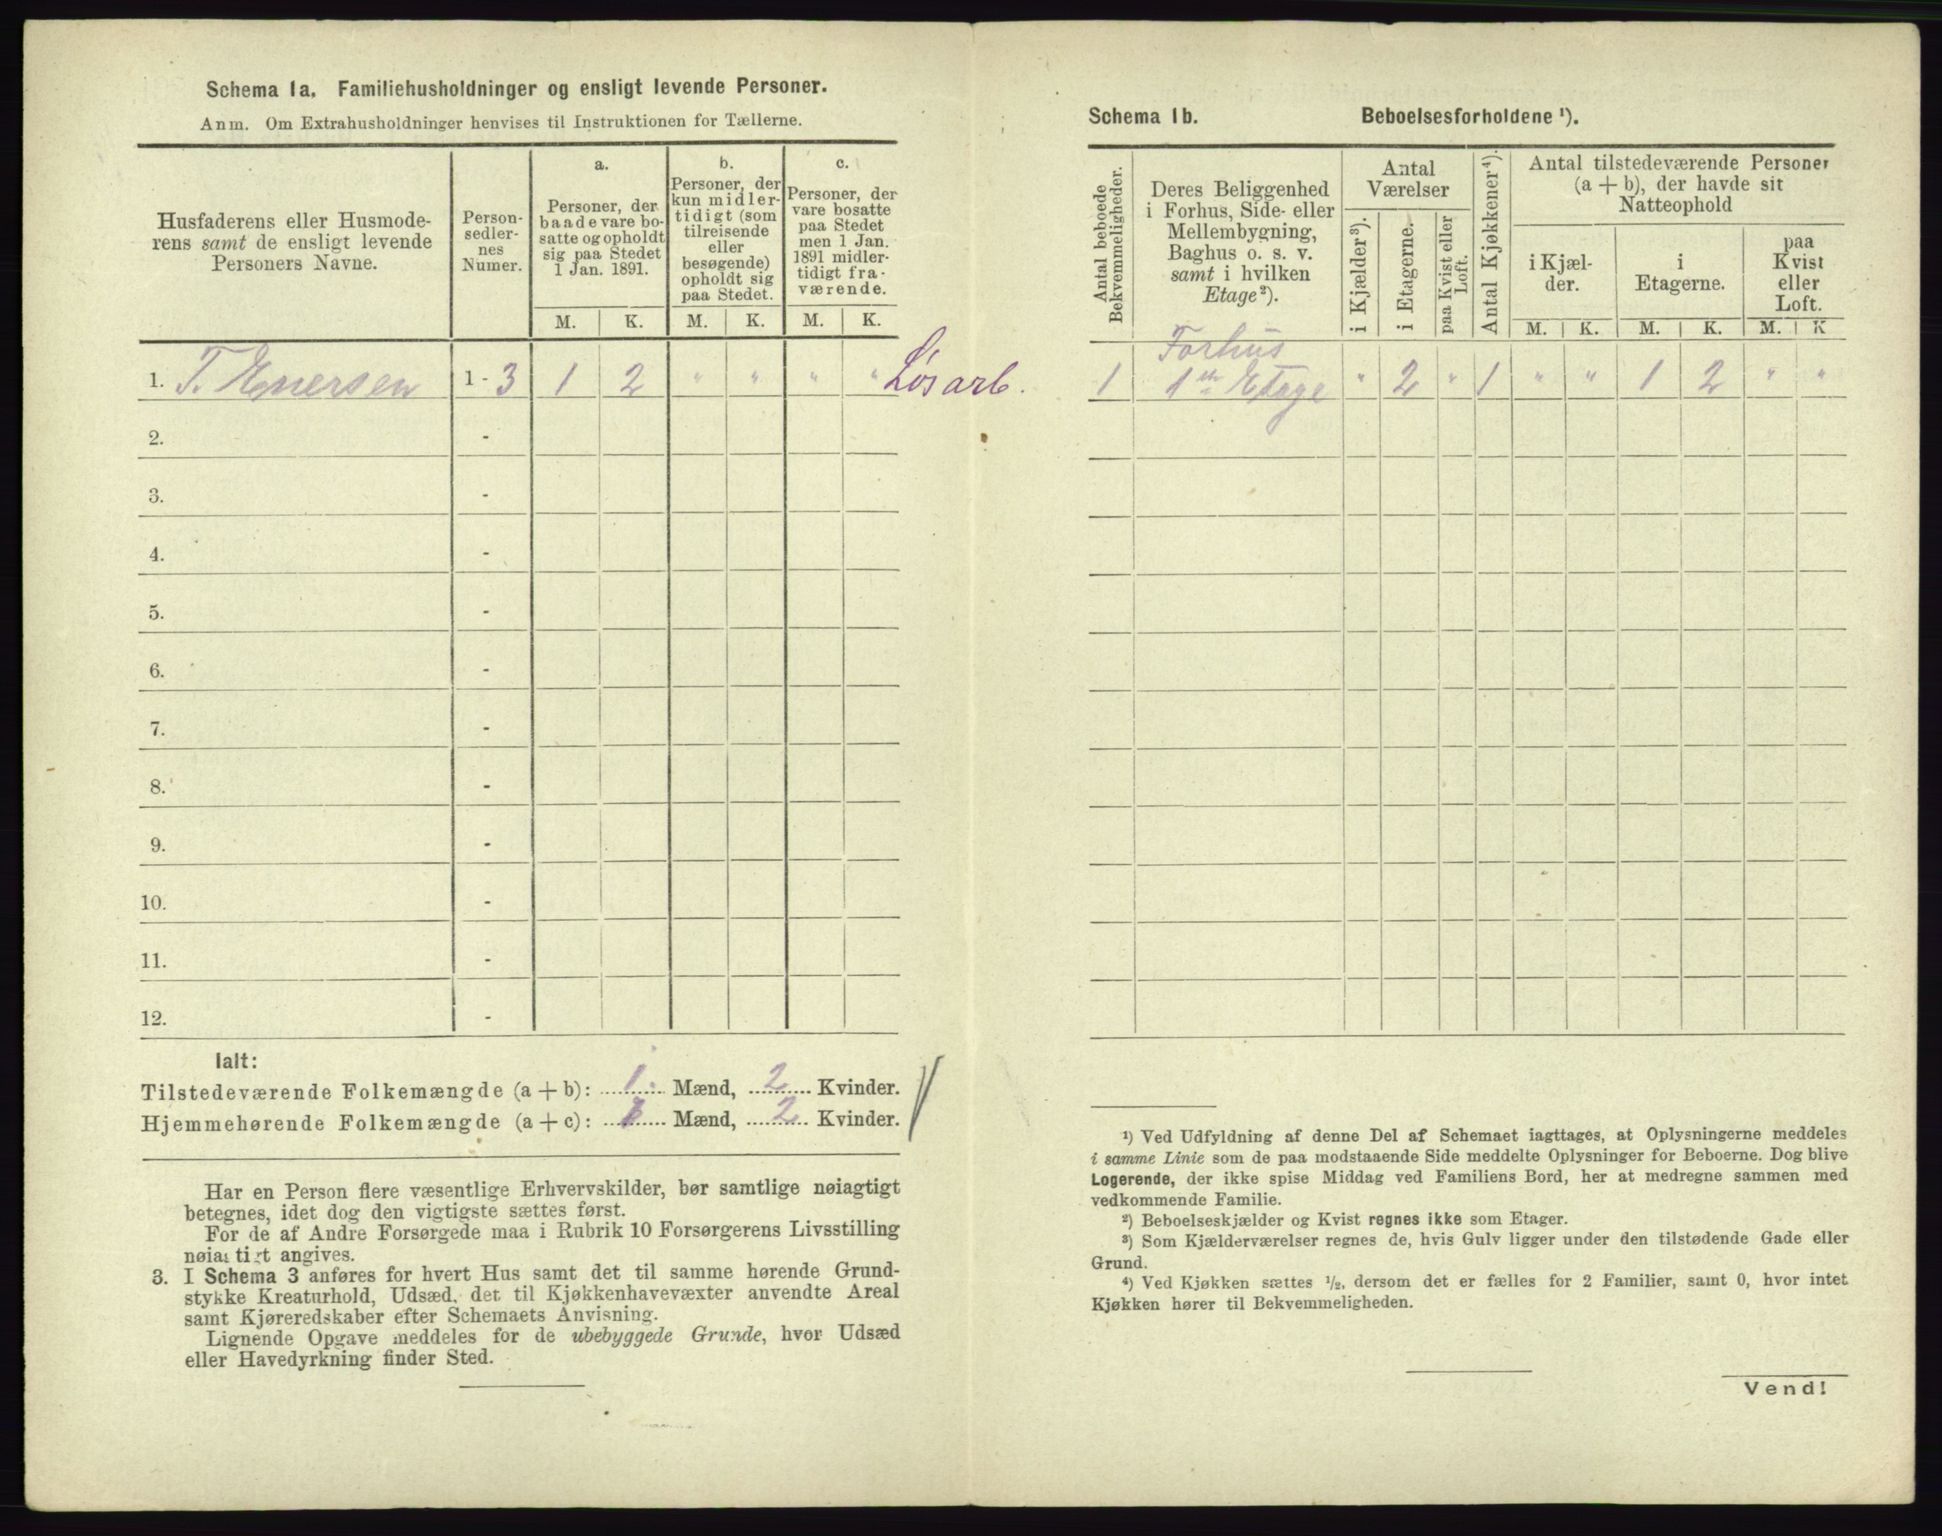 Schema 1a. Familiehusholdninger og ensligt levende Personer.
Anm. Om Extrahusholdninger henvises til Instruktionen for Tællerne.
Husfaderens eller Husmode-
rens samt de ensligt levende
Personers Navne.
Person-
sedler-
nes
Numer.
a.
Personer, der
baade vare bo-
satte og opholdt
sig paa Stedet
1 Jan. 1891.
M. K.
b.
Personer, der
kun midler-
tidigt (som
tilreisende
eller
besøgende)
opholdt sig
paa Stedet.
M. K.
c.
Personer, der
vare bosatte
paa Stedet
men 1 Jan.
1891 midler-
tidigt fra-
værende.
M. K.
1. T. 1 - 3 1 2 " " " " Løsarb.
2. -
3. -
4. -
5. -
6. -
7. -
8. -
9. -
10. -
11. -
12. -
Ialt:
Tilstedeværende Folkemængde (a + b): 1 Mænd, 2 Kvinder.
Hjemmehørende Folkemængde (a + c): 1 Mænd, 2 Kvinder.
Har en Person flere væsentlige Erhvervskilder, bør samtlige nøiagtigt
betegnes, idet dog den vigtigste sættes først.
For de af Andre Forsørgede maa i Rubrik 10 Forsørgerens Livsstilling
nøiagtigt angives.
3. I Schema 3 anføres for hvert Hus samt det til samme hørende Grund-
stykke Kreaturhold, Udsæd, det til Kjøkkenhavevæxter anvendte Areal
samt Kjøreredskaber efter Schemaets Anvisning.
Lignende Opgave meddeles for de ubebyggede Grunde, hvor Udsæd
eller Havedyrkning finder Sted.
Schema 1b. Beboelsesforholdene ¹).
Antal beboede
Bekvemmeligheder.
Deres Beliggenhed
i Forhus, Side- eller
Mellembygning,
Baghus o. s. v.
samt i hvilken
Etage²).
Antal
Værelser
i Kjælder³).
i Etagerne.
paa Kvist eller
Loft.
Antal Kjøkkener⁴).
Antal tilstedeværende Personer
(a + b), der havde sit
Natteophold
i Kjæl-
der.
i
Etagerne.
paa
Kvist
eller
Loft.
M. K. M. K. M. K
Forhus
1 1ste Etage " 2 " 1 " " 1 2 " "
¹) Ved Udfyldning af denne Del af Schemaet iagttages, at Oplysningerne meddeles
i samme Linie som de paa modstaaende Side meddelte Oplysninger for Beboerne. Dog blive
Logerende, der ikke spise Middag ved Familiens Bord, her at medregne sammen med
vedkommende Familie.
²) Beboelseskjælder og Kvist regnes ikke som Etager.
³) Som Kjælderværelser regnes de, hvis Gulv ligger under den tilstødende Gade eller
Grund.
⁴) Ved Kjøkken sættes ½, dersom det er fælles for 2 Familier, samt 0, hvor intet
Kjøkken hører til Bekvemmeligheden.
Vend!